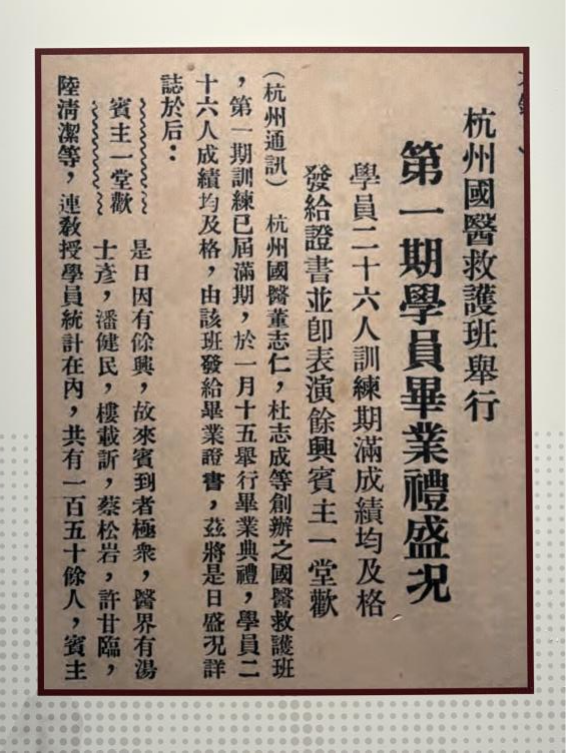 杭州國醫救護班舉行
第一期學員畢業禮盛況
學員二十六人訓練期滿成績均及格
發給證書並卽表演餘興賓主一堂歡
（杭州通訊）　杭州國醫董志仁，杜志成等創辦之國醫救護班
，第一期訓練已屆滿期，於一月十五舉行畢業典禮，學員二
十六人成績均及格，由該班發給畢業證書，茲將是日盛况詳
誌於后：
賓主一堂歡
是日因有餘興，故來賓到者極衆，醫界有湯
士彥，潘健民，樓載訢，蔡松岩，許甘臨，
陸淸潔等，連敎授學員統計在內，共有一百五十餘人，賓主